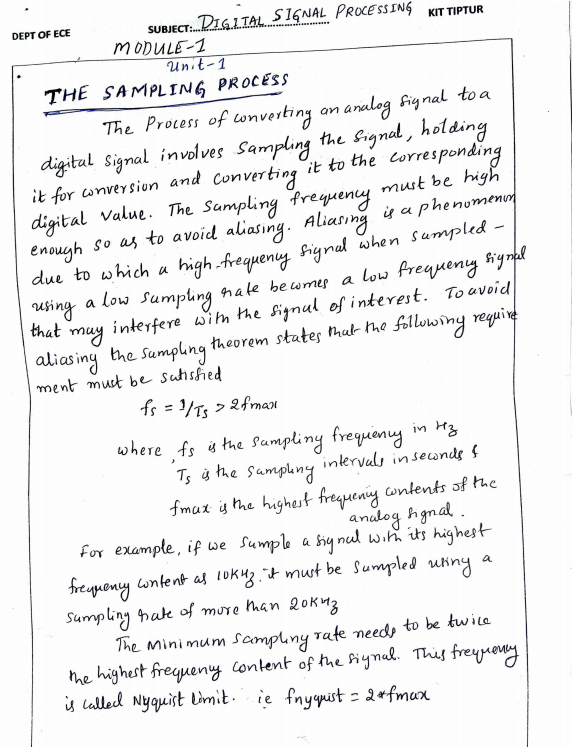 DEPT OF ECE SUBJECT:...DIGITAL SIGNAL PROCESSING KIT TIPTUR
MODULE-1
Unit-1
THE SAMPLING PROCESS
The Process of converting an analog signal to a
digital signal involves sampling the signal, holding
it for conversion and converting it to the corresponding
digital value. The sampling frequency must be high
enough so as to avoid aliasing. Aliasing is a phenomenon
due to which a high-frequency signal when sampled -
using a low sampling rate becomes a low frequency signal
that may interfere with the signal of interest. To avoid
aliasing the sampling theorem states that the following require
ment must be satisfied
fs = 1/Ts > 2fmax
where, fs is the sampling frequency in Hz
Ts is the sampling intervals in seconds &
fmax is the highest frequency contents of the
analog signal.
For example, if we sample a signal with its highest
frequency content as 10KHz, it must be sampled using a
sampling rate of more than 20KHz
The Minimum sampling rate needs to be twice
the highest frequency content of the signal. This frequency
is called Nyquist limit. ie fnyquist = 2*fmax